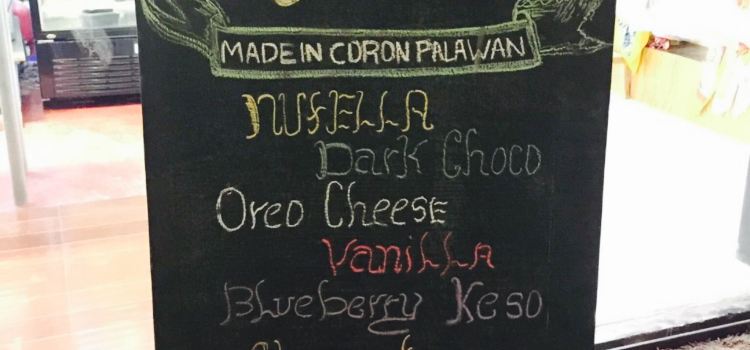 MADE IN CORON PALAWAN
NUTELLA
Dark Choco
Oreo CHEESE
VaniLLa
BLueberry Keso